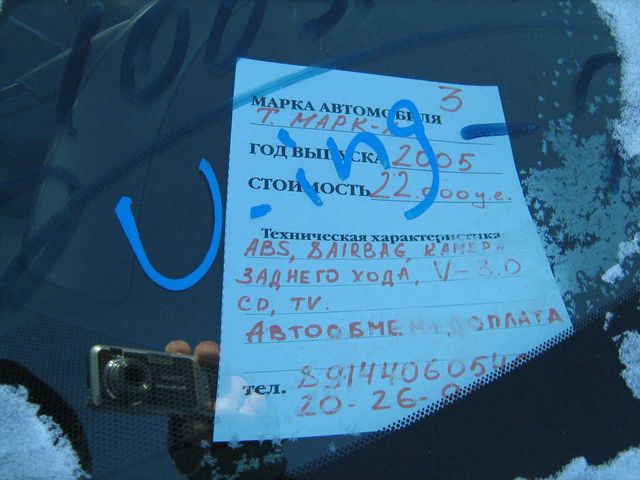 100
3
МАРКА АВТОМОБИЛЯ
Т. МАРК-X
ГОД ВЫПУСКА 2005
СТОИМОСТЬ 22.000 у.е.
U.ing
Техническая характеристика
ABS, 8AIRBAG, КАМЕРА
ЗАДНЕГО ХОДА, V-3.0
CD, TV.
АВТООБМЕН ДОПЛАТА
тел. 891440605
20-26-